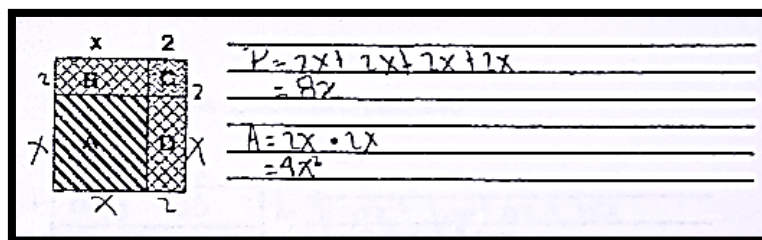 x 2
2 B C 2
X A D X
X 2
P = 2x + 2x + 2x + 2x
= 8x
A = 2x • 2x
= 4x²